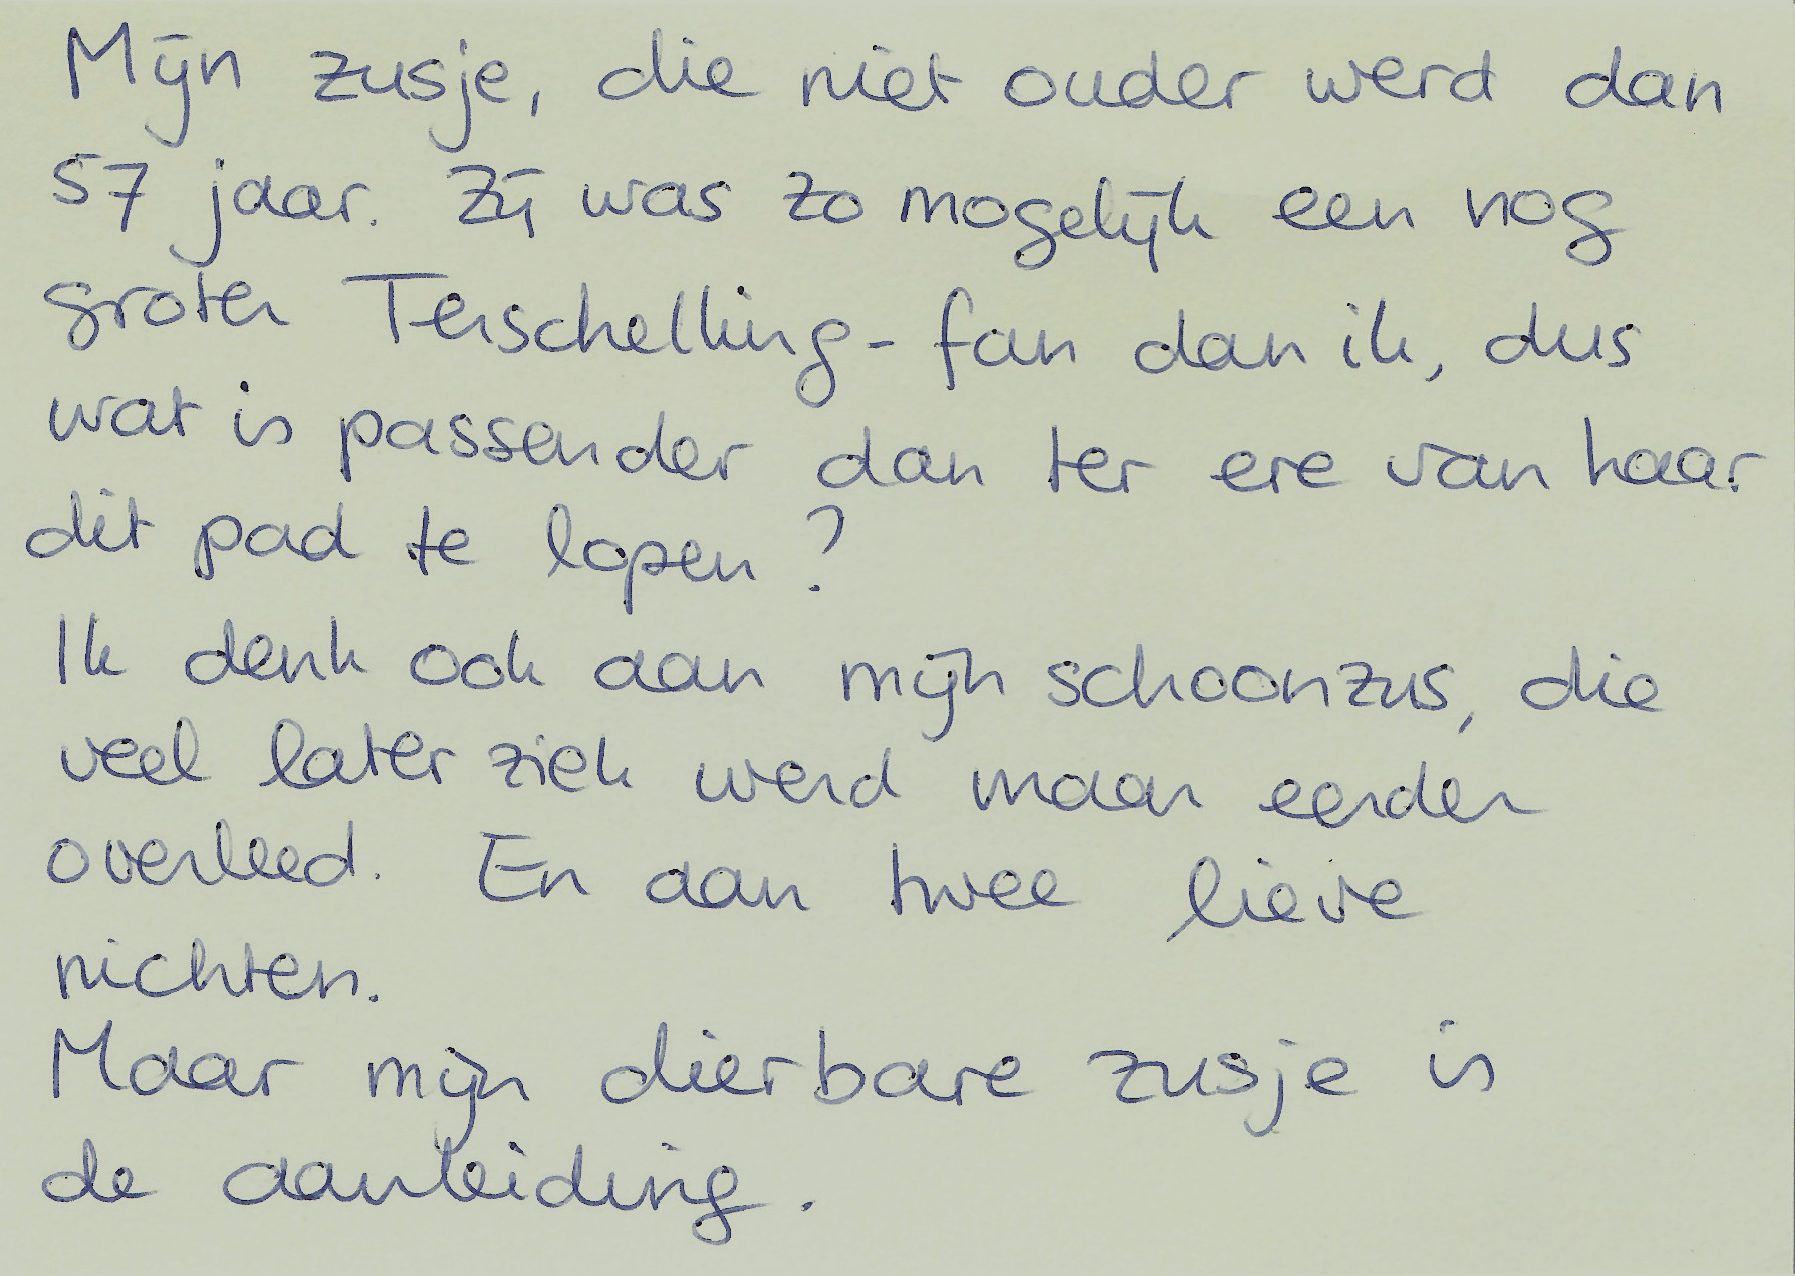 Mijn zusje, die niet ouder werd dan
57 jaar. Zij was zo mogelijk een nog
groter Terschelling-fan dan ik, dus
wat is passender dan ter ere van haar
dit pad te lopen?
Ik denk ook aan mijn schoonzus, die
veel later ziek werd maar eerder
overleed. En aan twee lieve
nichten.
Maar mijn dierbare zusje is
de aanleiding.